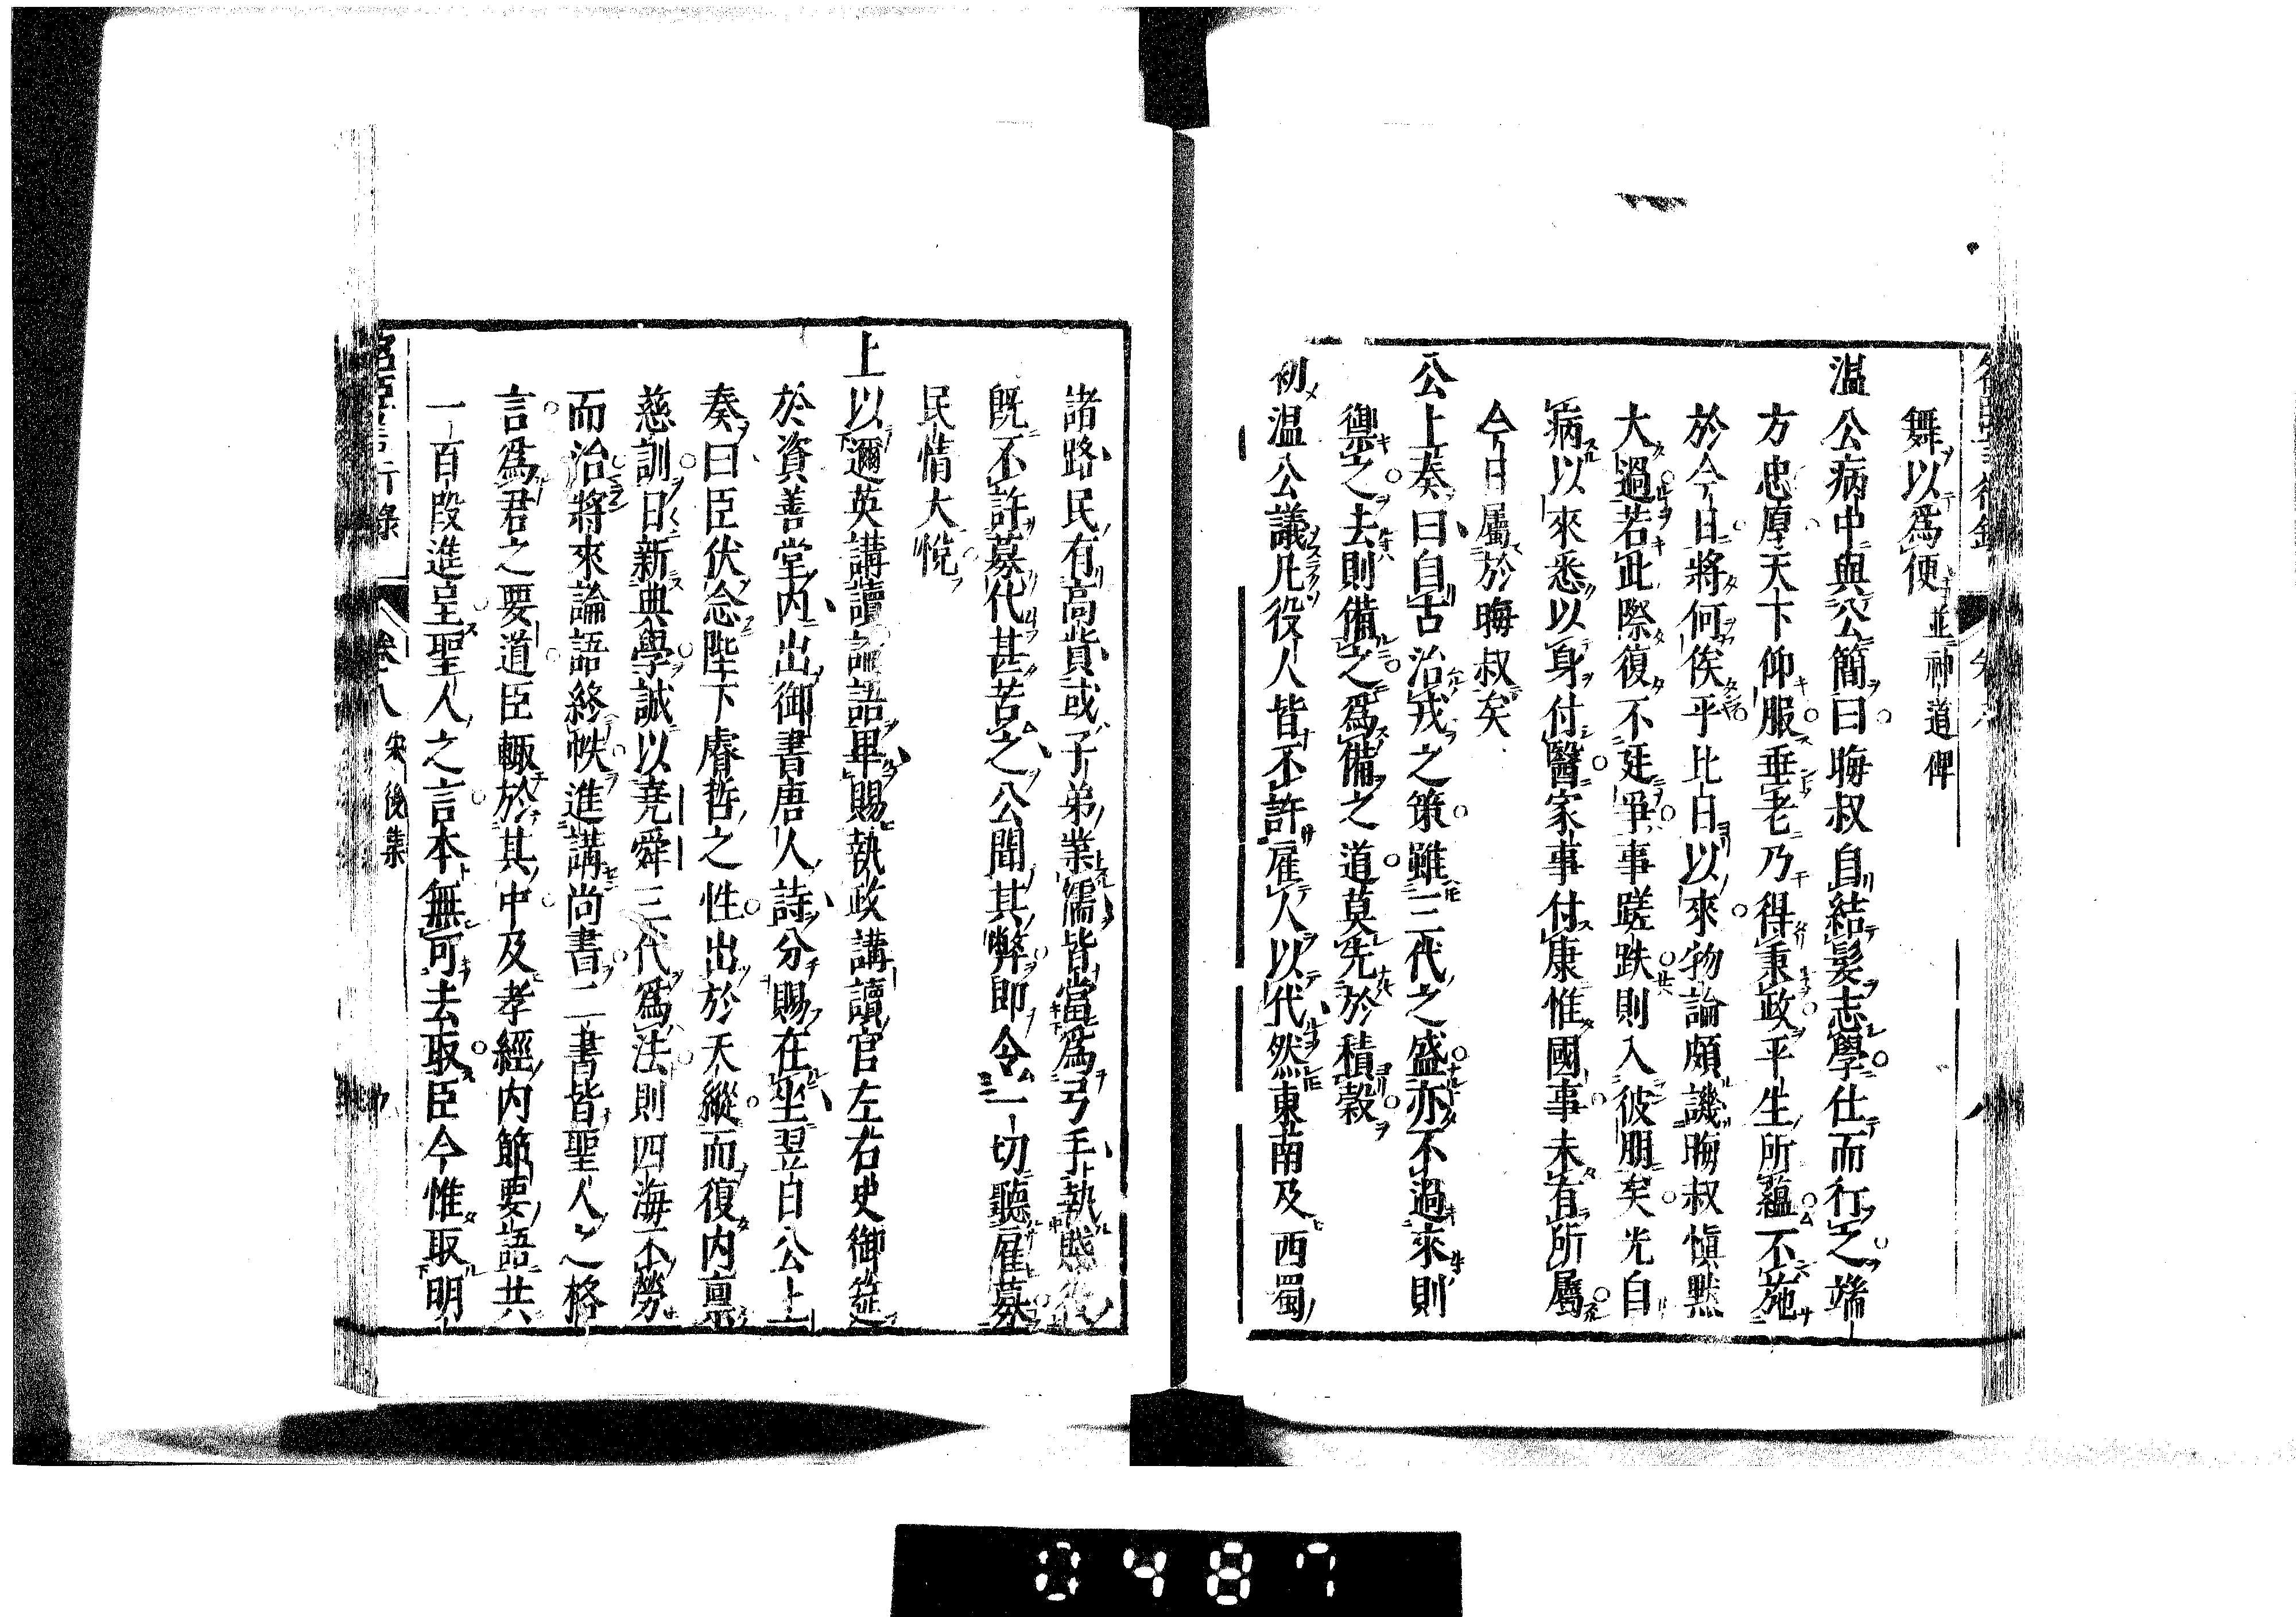 舞以爲便並神道碑
温公病中與公簡曰晦叔自結髮志學仕而行之端
方忠厚天下仰服垂老乃得秉政平生所蘊不施
於今日將何俟乎比日以來物論頗譏晦叔愼黙
大過若此際復不廷爭事蹉跌則入彼朋矣光自
病以來悉以身付醫家事付康惟國事未有所屬
今日屬於晦叔矣
公上奏曰自古治戎之策雖三代之盛亦不過來則
禦之去則備之爲備之道莫先於積穀
初温公議凡役人皆不許雇人以代然東南及西蜀
諸路民有高貲或子弟業儒皆當爲弓手執賤役
既不許募代甚苦之公聞其弊即令一切聽雇募
民情大悅
上以邇英講讀論語畢賜執政講讀官左右史御筵
於資善堂內出御書唐人詩分賜在坐翌日公上
奏曰臣伏念陛下睿哲之性出於天縱而復內稟
慈訓日新典學誠以堯舜三代爲法則四海不勞
而治將來論語終帙進講尚書二書皆聖人之格
言爲君之要道臣輒於其中及孝經內節要語共
一百段進呈聖人之言本無可去取臣今惟取明
名臣言行錄 卷八 宋後集